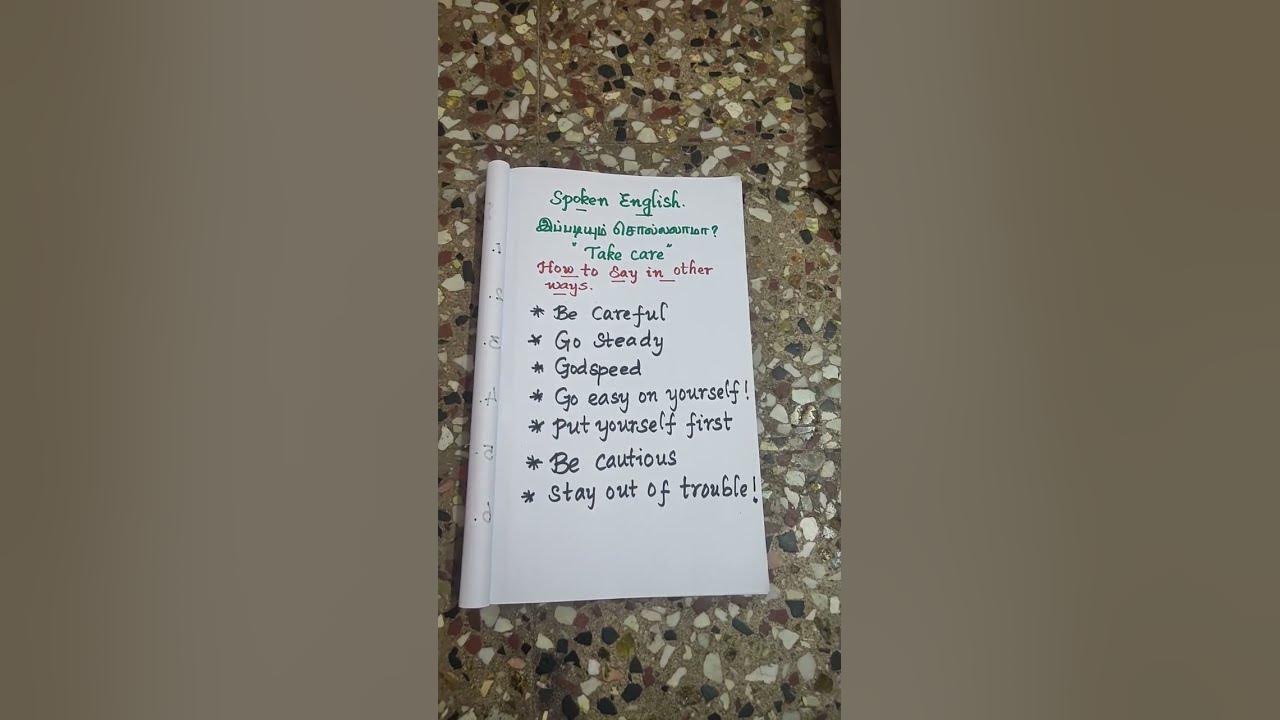 Spoken English.
இப்படியும் சொல்லலாமா?
"Take care"
How to Say in other
ways.
* Be careful
* Go steady
* Godspeed
* Go easy on yourself!
* put yourself first
* Be cautious
* stay out of trouble!